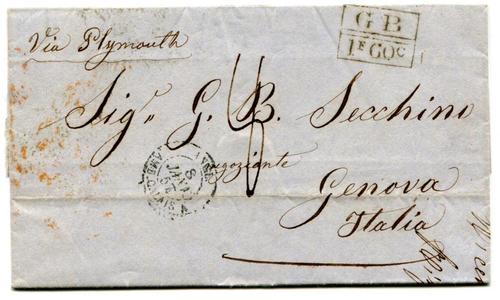 Via Plymouth
G B
1F60C
Sigr G. B. Secchino
negoziante
Genova
Italia